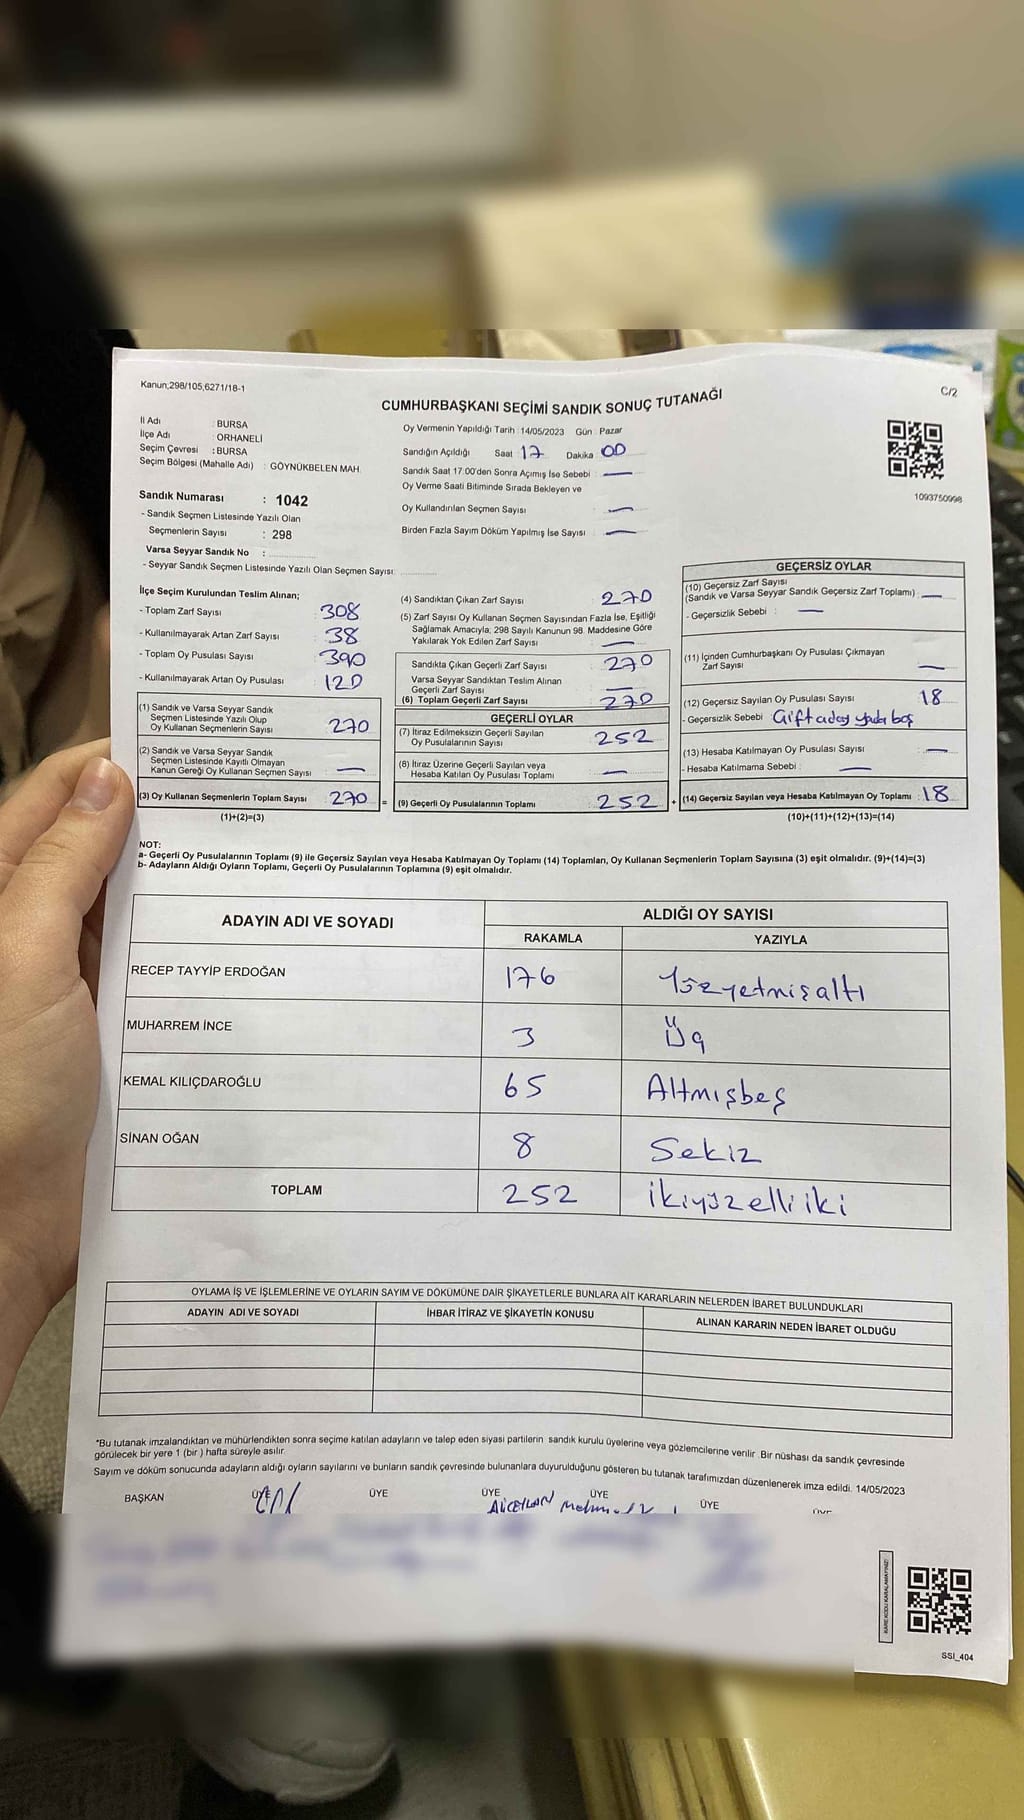 Kanun;298/105,6271/18-1
C/2
CUMHURBAŞKANI SEÇİMİ SANDIK SONUÇ TUTANAĞI
İl Adı : BURSA
İlçe Adı : ORHANELİ
Seçim Çevresi : BURSA
Seçim Bölgesi (Mahalle Adı) : GÖYNÜKBELEN MAH.
Sandık Numarası : 1042
- Sandık Seçmen Listesinde Yazılı Olan
Seçmenlerin Sayısı : 298
Varsa Seyyar Sandık No :
- Seyyar Sandık Seçmen Listesinde Yazılı Olan Seçmen Sayısı:
Oy Vermenin Yapıldığı Tarih :14/05/2023 Gün : Pazar
Sandığın Açıldığı Saat 17 Dakika 00
Sandık Saat 17:00'den Sonra Açımış İse Sebebi : —
Oy Verme Saati Bitiminde Sırada Bekleyen ve
Oy Kullandırılan Seçmen Sayısı : —
Birden Fazla Sayım Döküm Yapılmış İse Sayısı : —
1093750998
İlçe Seçim Kurulundan Teslim Alınan;
- Toplam Zarf Sayısı : 308
- Kullanılmayarak Artan Zarf Sayısı : 38
- Toplam Oy Pusulası Sayısı : 390
- Kullanılmayarak Artan Oy Pusulası : 120
(1) Sandık ve Varsa Seyyar Sandık
Seçmen Listesinde Yazılı Olup
Oy Kullanan Seçmenlerin Sayısı : 270
(2) Sandık ve Varsa Seyyar Sandık
Seçmen Listesinde Kayıtlı Olmayan
Kanun Gereği Oy Kullanan Seçmen Sayısı : —
(3) Oy Kullanan Seçmenlerin Toplam Sayısı : 270
(1)+(2)=(3)
(4) Sandıktan Çıkan Zarf Sayısı : 270
(5) Zarf Sayısı Oy Kullanan Seçmen Sayısından Fazla İse, Eşitliği
Sağlamak Amacıyla; 298 Sayılı Kanunun 98. Maddesine Göre
Yakılarak Yok Edilen Zarf Sayısı : —
Sandıkta Çıkan Geçerli Zarf Sayısı : 270
Varsa Seyyar Sandıktan Teslim Alınan
Geçerli Zarf Sayısı : —
(6) Toplam Geçerli Zarf Sayısı : 270
GEÇERLİ OYLAR
(7) İtiraz Edilmeksizin Geçerli Sayılan
Oy Pusulalarının Sayısı : 252
(8) İtiraz Üzerine Geçerli Sayılan veya
Hesaba Katılan Oy Pusulası Toplamı : —
= (9) Geçerli Oy Pusulalarının Toplamı : 252 +
GEÇERSİZ OYLAR
(10) Geçersiz Zarf Sayısı
(Sandık ve Varsa Seyyar Sandık Geçersiz Zarf Toplamı) : —
- Geçersizlik Sebebi : —
(11) İçinden Cumhurbaşkanı Oy Pusulası Çıkmayan
Zarf Sayısı : —
(12) Geçersiz Sayılan Oy Pusulası Sayısı : 18
- Geçersizlik Sebebi : Çift aday yada boş
(13) Hesaba Katılmayan Oy Pusulası Sayısı : —
- Hesaba Katılmama Sebebi : —
(14) Geçersiz Sayılan veya Hesaba Katılmayan Oy Toplamı : 18
(10)+(11)+(12)+(13)=(14)
NOT:
a- Geçerli Oy Pusulalarının Toplamı (9) ile Geçersiz Sayılan veya Hesaba Katılmayan Oy Toplamı (14) Toplamları, Oy Kullanan Seçmenlerin Toplam Sayısına (3) eşit olmalıdır. (9)+(14)=(3)
b- Adayların Aldığı Oyların Toplamı, Geçerli Oy Pusulalarının Toplamına (9) eşit olmalıdır.
ADAYIN ADI VE SOYADI
ALDIĞI OY SAYISI
RAKAMLA YAZIYLA
RECEP TAYYİP ERDOĞAN 176 Yüzyetmişaltı
MUHARREM İNCE 3 Üç
KEMAL KILIÇDAROĞLU 65 Altmışbeş
SİNAN OĞAN 8 Sekiz
TOPLAM 252 İkiyüzelliiki
OYLAMA İŞ VE İŞLEMLERİNE VE OYLARIN SAYIM VE DÖKÜMÜNE DAİR ŞİKAYETLERLE BUNLARA AİT KARARLARIN NELERDEN İBARET BULUNDUKLARI
ADAYIN ADI VE SOYADI İHBAR İTİRAZ VE ŞİKAYETİN KONUSU ALINAN KARARIN NEDEN İBARET OLDUĞU
*Bu tutanak imzalandıktan ve mühürlendikten sonra seçime katılan adayların ve talep eden siyasi partilerin sandık kurulu üyelerine veya gözlemcilerine verilir. Bir nüshası da sandık çevresinde
görülecek bir yere 1 (bir ) hafta süreyle asılır.
Sayım ve döküm sonucunda adayların aldığı oyların sayılarını ve bunların sandık çevresinde bulunanlara duyurulduğunu gösteren bu tutanak tarafımızdan düzenlenerek imza edildi. 14/05/2023
BAŞKAN ÜYE ÜYE ÜYE ÜYE ÜYE ÜYE
KARE KODU KARALAMAYINIZ!
SSI_404